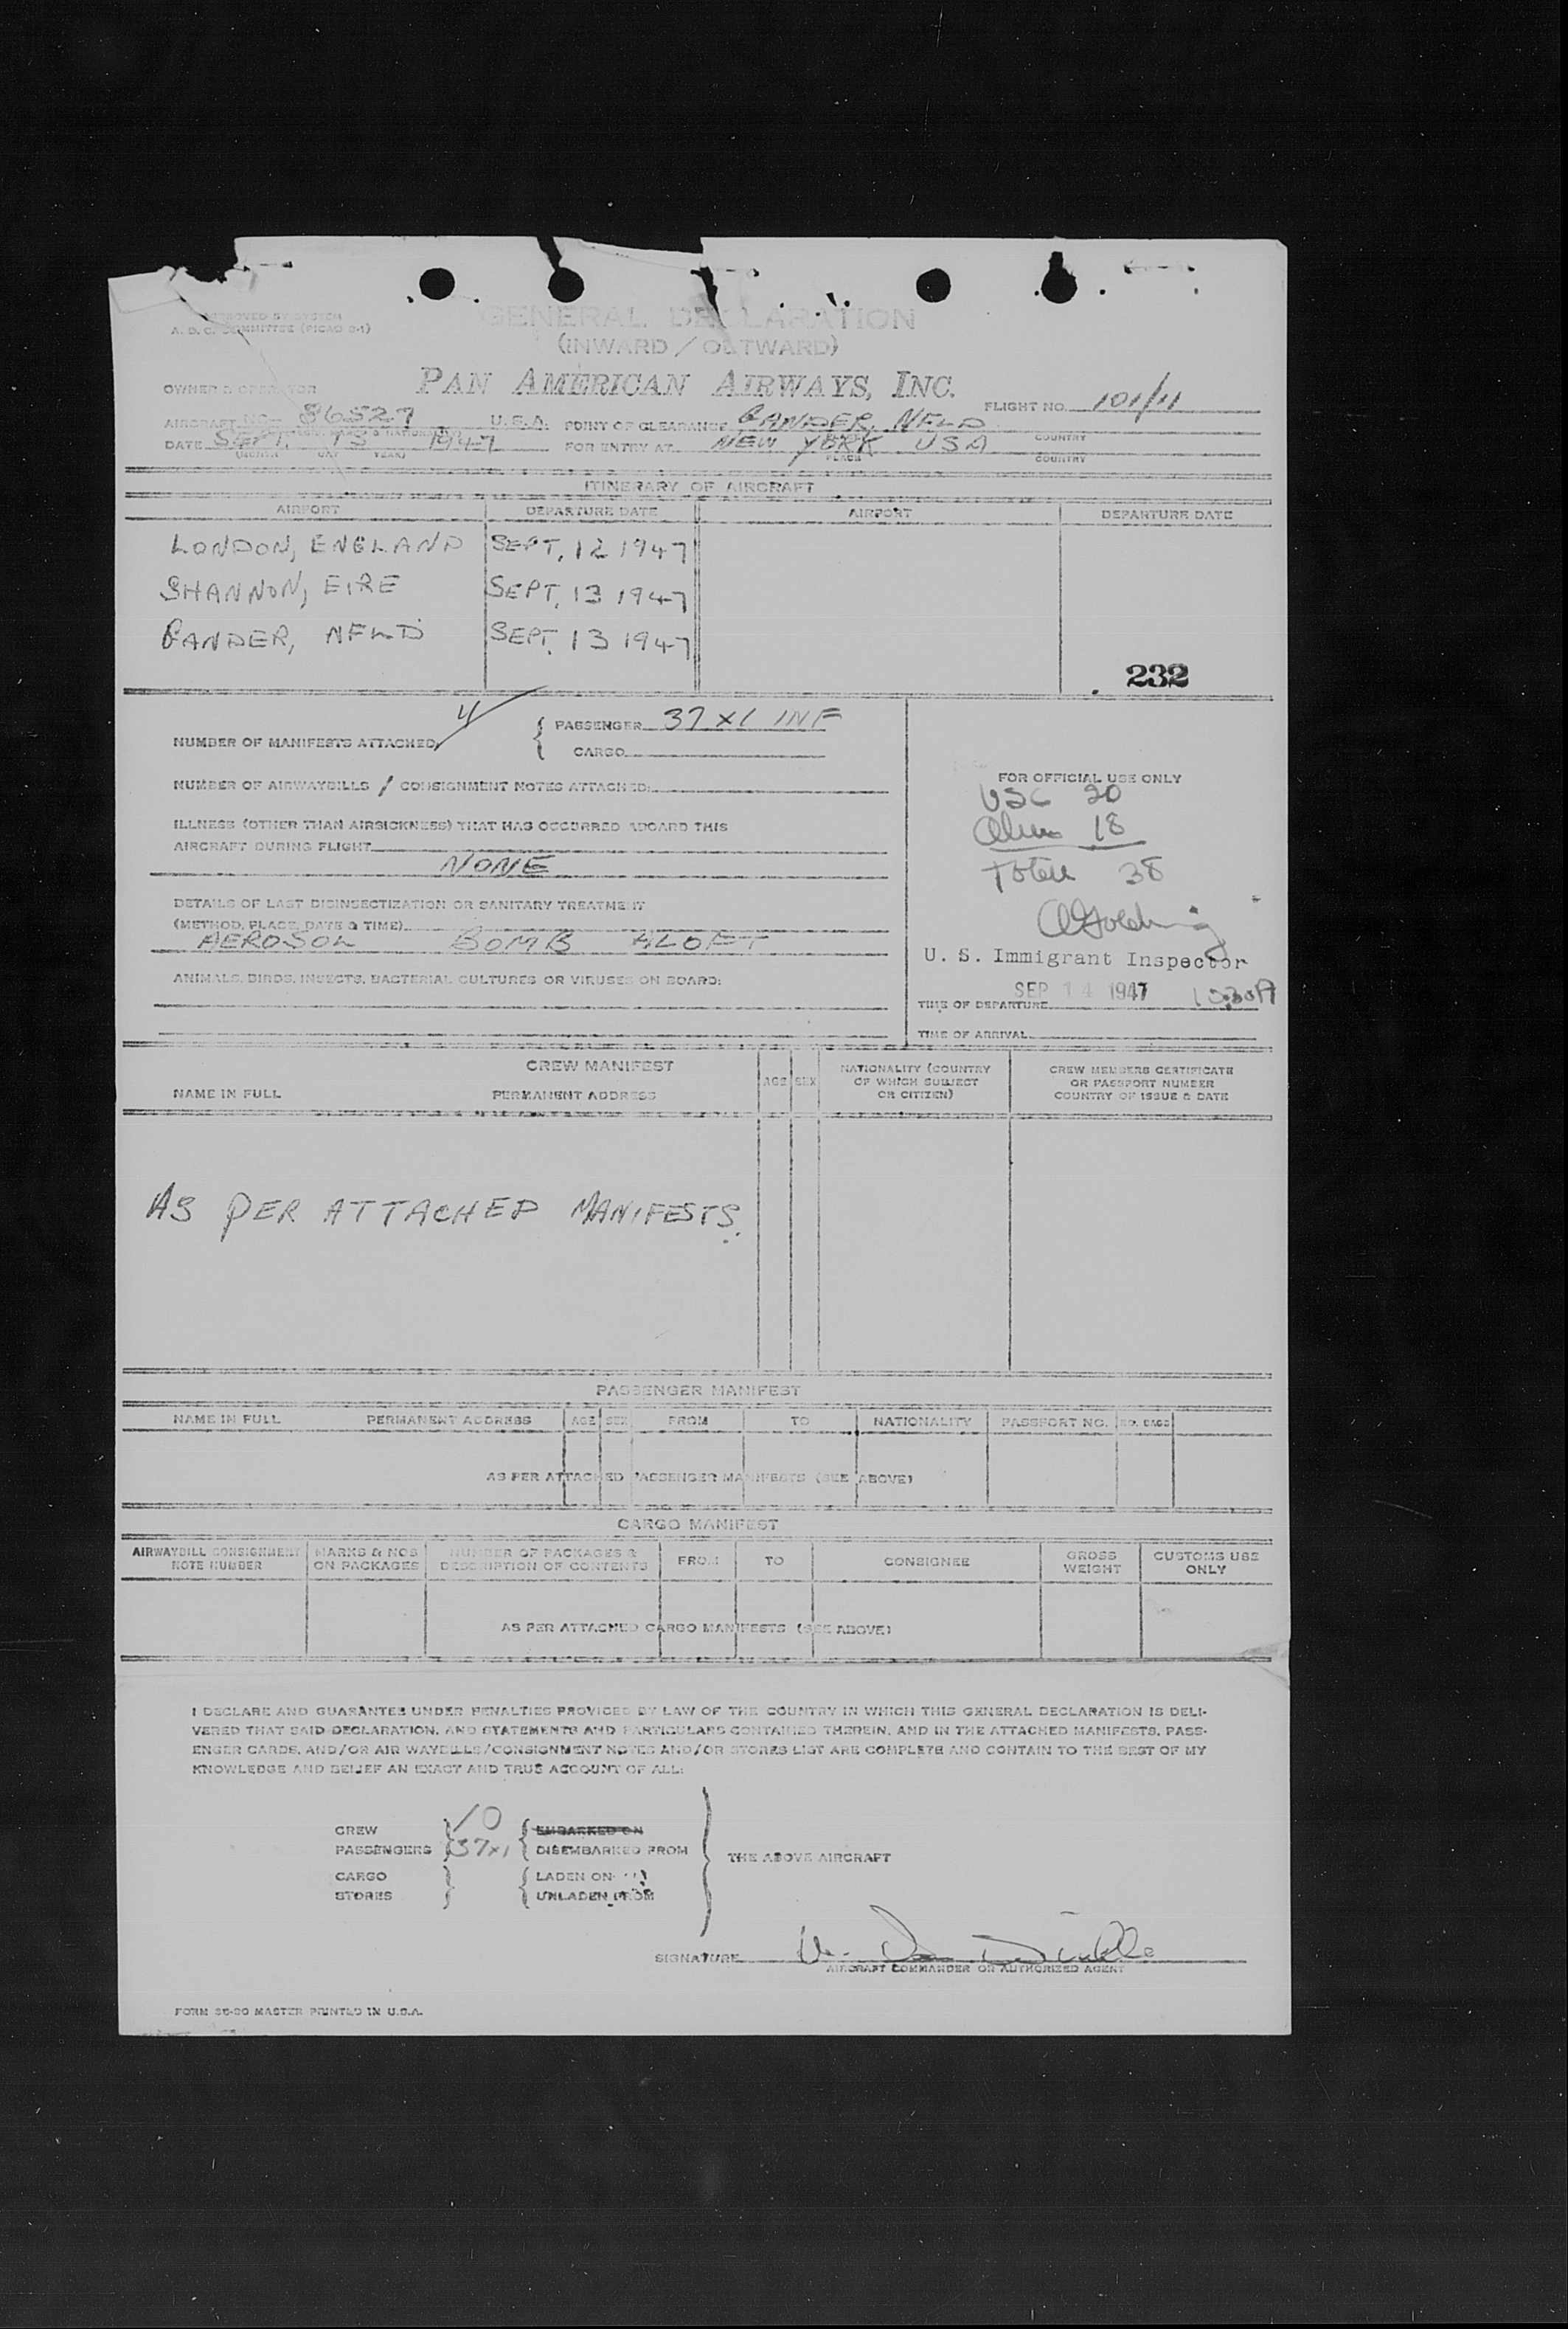 APPROVED BY SYSTEM
A. D. C. COMMITTEE (PICAO 8-1)
GENERAL DECLARATION
(INWARD / OUTWARD)
OWNER & OPERATOR
PAN AMERICAN AIRWAYS, INC.
FLIGHT NO. 101/11
AIRCRAFT NC- 86527 U.S.A. POINT OF CLEARANCE GANDER, NFLD
COUNTRY
DATE SEPT. 13 1947 FOR ENTRY AT NEW YORK USA
(MONTH DAY YEAR) PLACE COUNTRY
ITINERARY OF AIRCRAFT
AIRPORT DEPARTURE DATE AIRPORT DEPARTURE DATE
LONDON, ENGLAND SEPT, 12 1947
SHANNON, EIRE SEPT, 13 1947
GANDER, NFLD SEPT. 13 1947
232
NUMBER OF MANIFESTS ATTACHED 4 { PASSENGER 37 x 1 INF
CARGO
NUMBER OF AIRWAYBILLS / CONSIGNMENT NOTES ATTACHED:
ILLNESS (OTHER THAN AIRSICKNESS) THAT HAS OCCURRED ABOARD THIS
AIRCRAFT DURING FLIGHT
NONE
DETAILS OF LAST DISINSECTIZATION OR SANITARY TREATMENT
(METHOD, PLACE, DATE & TIME)
AEROSOL BOMB ALOFT
ANIMALS, BIRDS, INSECTS, BACTERIAL CULTURES OR VIRUSES ON BOARD:
FOR OFFICIAL USE ONLY
USC 20
Alien 18
Total 38
U. S. Immigrant Inspector
SEP 14 1947
TIME OF DEPARTURE
TIME OF ARRIVAL
CREW MANIFEST
NAME IN FULL PERMANENT ADDRESS AGE SEX NATIONALITY (COUNTRY OF WHICH SUBJECT OR CITIZEN) CREW MEMBERS CERTIFICATE OR PASSPORT NUMBER COUNTRY OF ISSUE & DATE
AS PER ATTACHED MANIFESTS.
PASSENGER MANIFEST
NAME IN FULL PERMANENT ADDRESS AGE SEX FROM TO NATIONALITY PASSPORT NO. NO. BAGS
AS PER ATTACHED PASSENGER MANIFESTS (SEE ABOVE)
CARGO MANIFEST
AIRWAYBILL CONSIGNMENT NOTE NUMBER MARKS & NOS ON PACKAGES NUMBER OF PACKAGES & DESCRIPTION OF CONTENTS FROM TO CONSIGNEE GROSS WEIGHT CUSTOMS USE ONLY
AS PER ATTACHED CARGO MANIFESTS (SEE ABOVE)
I DECLARE AND GUARANTEE UNDER PENALTIES PROVIDED BY LAW OF THE COUNTRY IN WHICH THIS GENERAL DECLARATION IS DELI-
VERED THAT SAID DECLARATION, AND STATEMENTS AND PARTICULARS CONTAINED THEREIN, AND IN THE ATTACHED MANIFESTS, PASS-
ENGER CARDS, AND/OR AIR WAYBILLS/CONSIGNMENT NOTES AND/OR STORES LIST ARE COMPLETE AND CONTAIN TO THE BEST OF MY
KNOWLEDGE AND BELIEF AN EXACT AND TRUE ACCOUNT OF ALL:
CREW 10 EMBARKED ON
PASSENGERS 37x1 DISEMBARKED FROM
THE ABOVE AIRCRAFT
CARGO LADEN ON
STORES UNLADEN FROM
SIGNATURE
AIRCRAFT COMMANDER OR AUTHORIZED AGENT
FORM 36-80 MASTER PRINTED IN U.S.A.